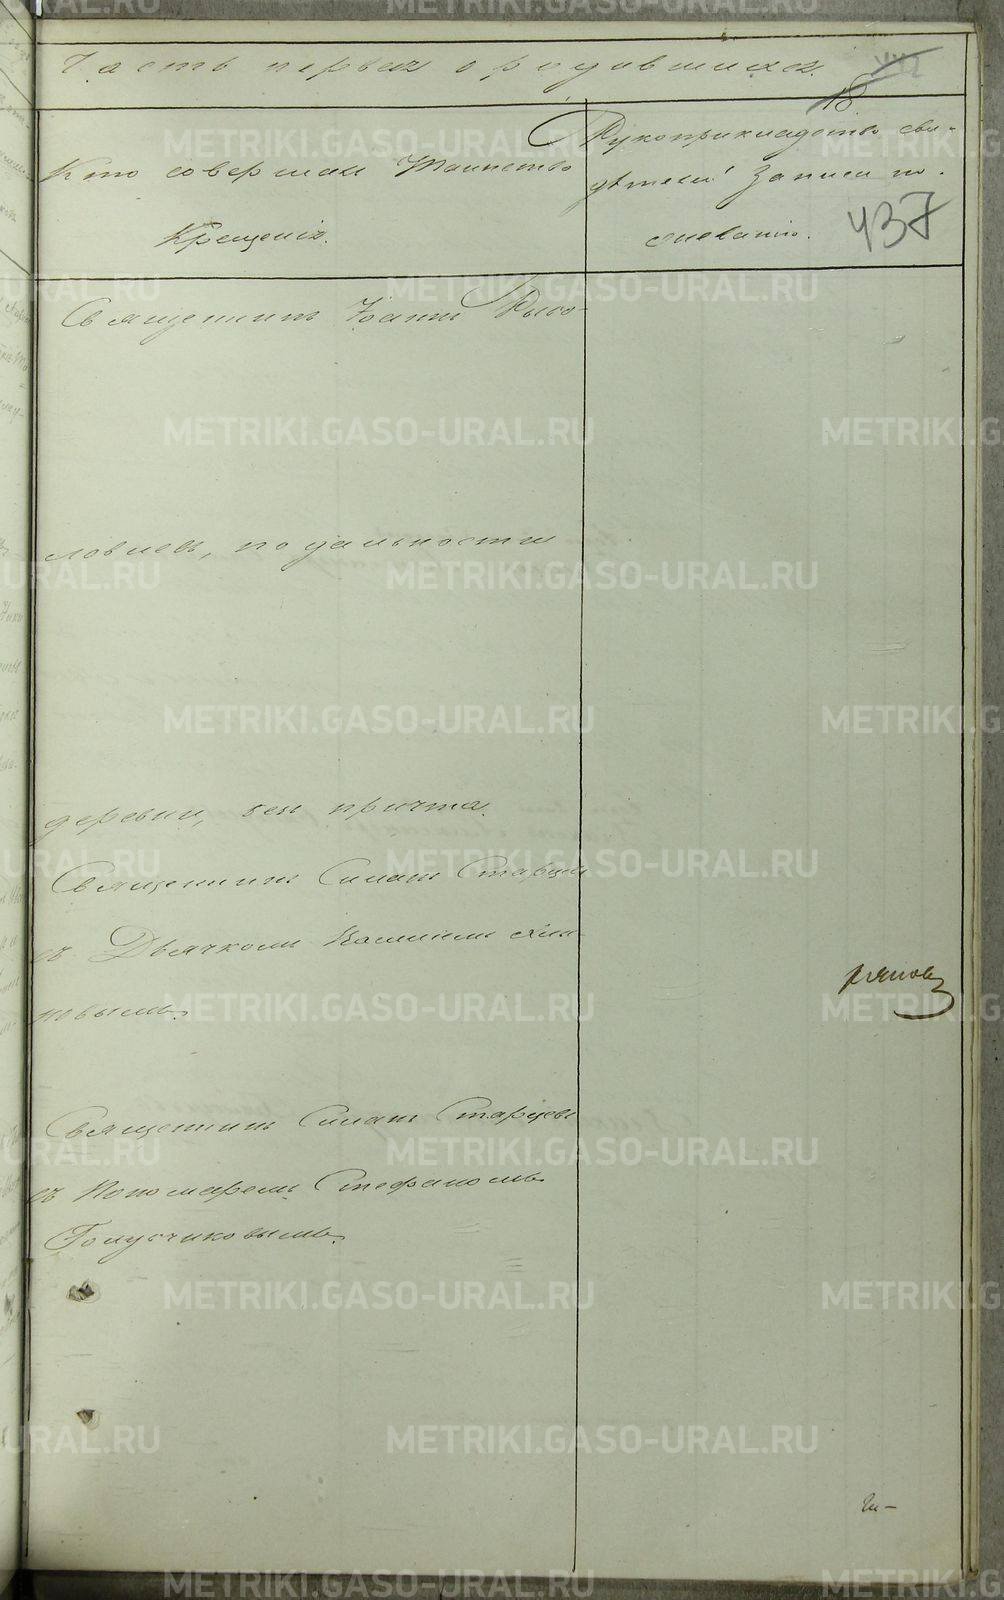 Часть первая о родившихся.
18
Кто совершал Таинство
Крещенія.
Рукоприкладство сви-
дѣтелей записи по
желанію.
437
Священникъ Іоаннъ Рысо-
ловлевъ, по дальности
деревни, безъ причта.
Священникъ Силантій Старцевъ
съ Дьячкомъ
новымъ.
Священникъ Старцевъ
съ Пономаремъ Стефаномъ
Голубчиковымъ.
METRIKI.GASO-URAL.RU